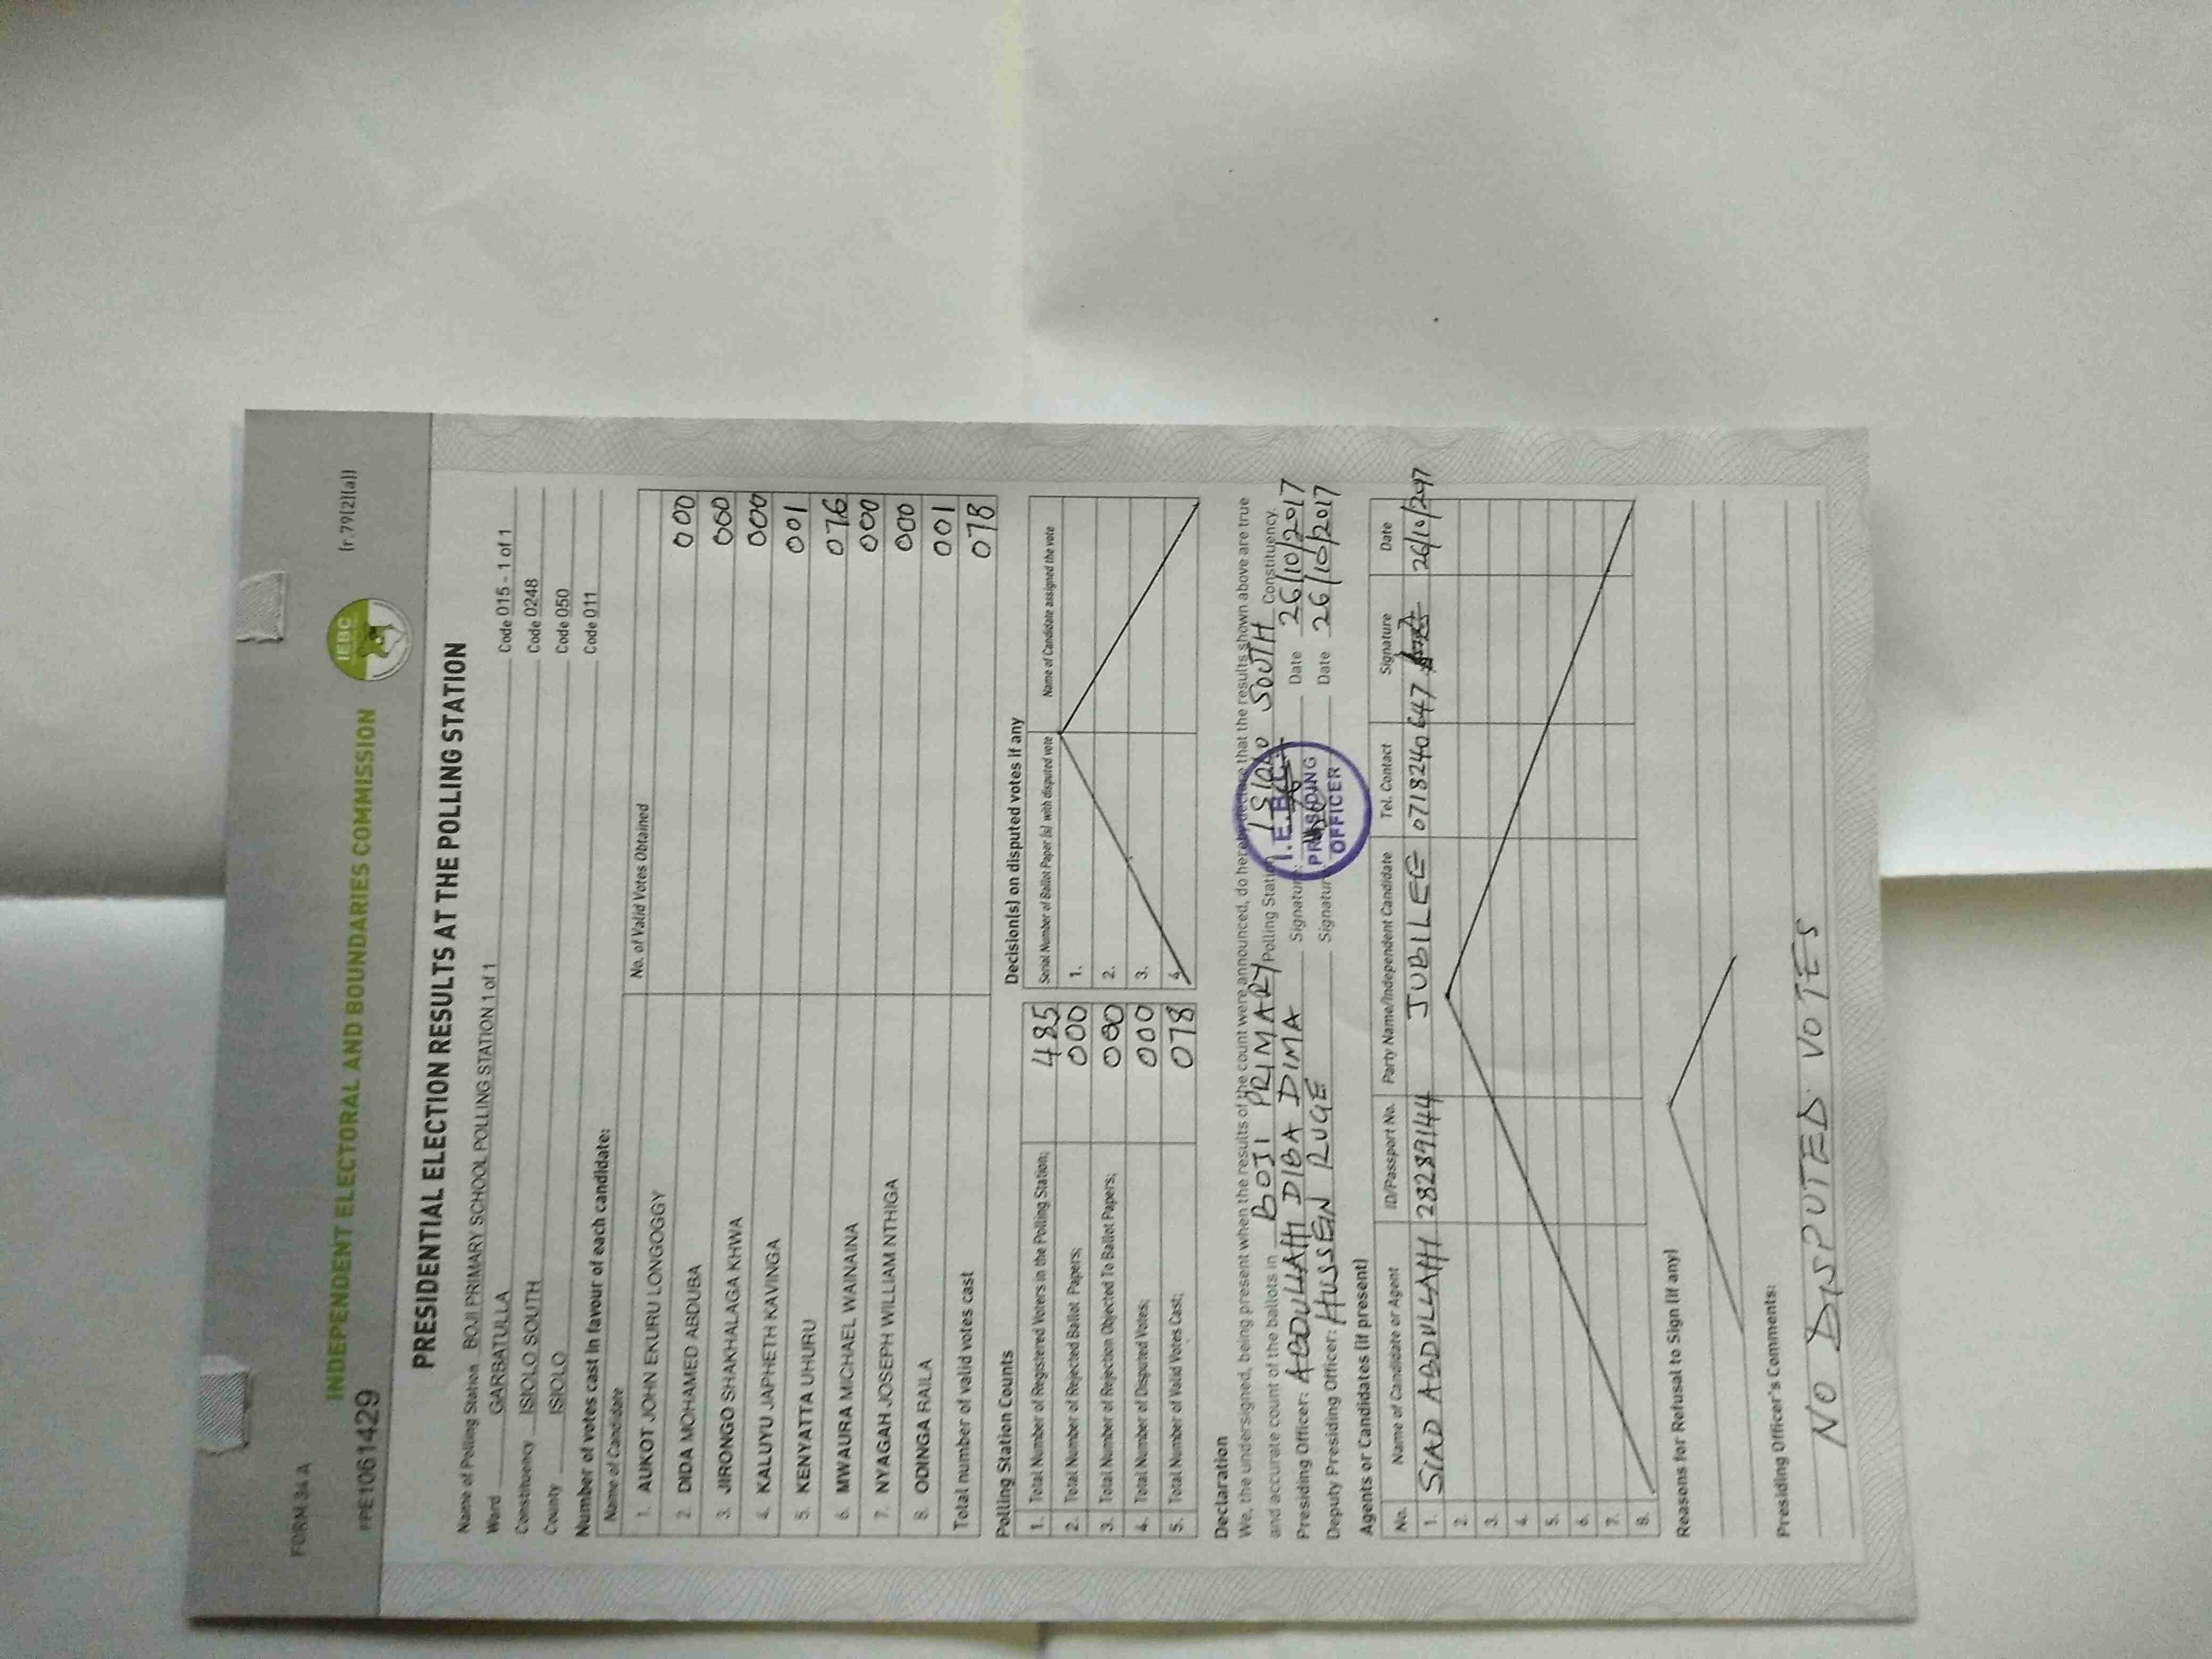 FORM 34 A
(r.79(2)(a))
INDEPENDENT ELECTORAL AND BOUNDARIES COMMISSION
IEBC
PPE1061429
PRESIDENTIAL ELECTION RESULTS AT THE POLLING STATION
Name of Polling Station BOJI PRIMARY SCHOOL POLLING STATION 1 of 1 Code 015 - 1 of 1
Ward GARBATULLA Code 0248
Constituency ISIOLO SOUTH Code 050
County ISIOLO Code 011
Number of votes cast in favour of each candidate:
Name of Candidate No. of Valid Votes Obtained
1. AUKOT JOHN EKURU LONGOGGY 000
2. DIDA MOHAMED ABDUBA 000
3. JIRONGO SHAKHALAGA KHWA 000
4. KALUYU JAPHETH KAVINGA 001
5. KENYATTA UHURU 076
6. MWAURA MICHAEL WAINAINA 000
7. NYAGAH JOSEPH WILLIAM NTHIGA 000
8. ODINGA RAILA 001
Total number of valid votes cast 078
Polling Station Counts
1. Total Number of Registered Voters in the Polling Station; 485
2. Total Number of Rejected Ballot Papers; 000
3. Total Number of Rejection Objected To Ballot Papers; 000
4. Total Number of Disputed Votes; 000
5. Total Number of Valid Votes Cast; 078
Decision(s) on disputed votes if any
Serial Number of Ballot Paper (s) with disputed vote Name of Candidate assigned the vote
1.
2.
3.
4.
Declaration
We, the undersigned, being present when the results of the count were announced, do hereby declare that the results shown above are true
and accurate count of the ballots in BOJI PRIMARY Polling Station ISIOLO SOUTH Constituency.
Presiding Officer: ABDULLAHI DIBA DIMA Signature: Date 26/10/2017
Deputy Presiding Officer: HUSSEIN RUGE Signature: Date 26/10/2017
I.E.B.C.
PRESIDING
OFFICER
Agents or Candidates (if present)
No. Name of Candidate or Agent ID/Passport No. Party Name/Independent Candidate Tel. Contact Signature Date
1. SIAD ABDULLAHI 28289144 JUBILEE 0718240647 26/10/2017
2.
3.
4.
5.
6.
7.
8.
Reasons for Refusal to Sign (if any)
Presiding Officer's Comments:
NO DISPUTED VOTES